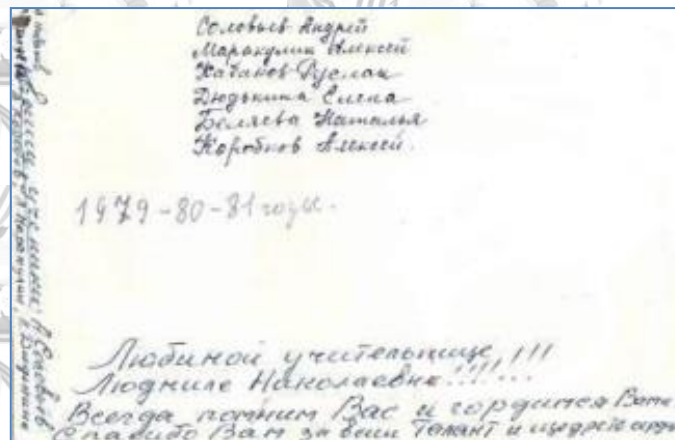 Соловьев Андрей
Маракулин Алексей
Хабанов Руслан
Дюдькина Елена
Беляева Наталья
Коробков Алексей.
1979-80-81 годы.
Любимой учительнице!!!
Людмиле Николаевне!!!...
Всегда помним Вас и гордимся Вами
Спасибо Вам за ваш талант и щедрость
ученики: А Соловьев